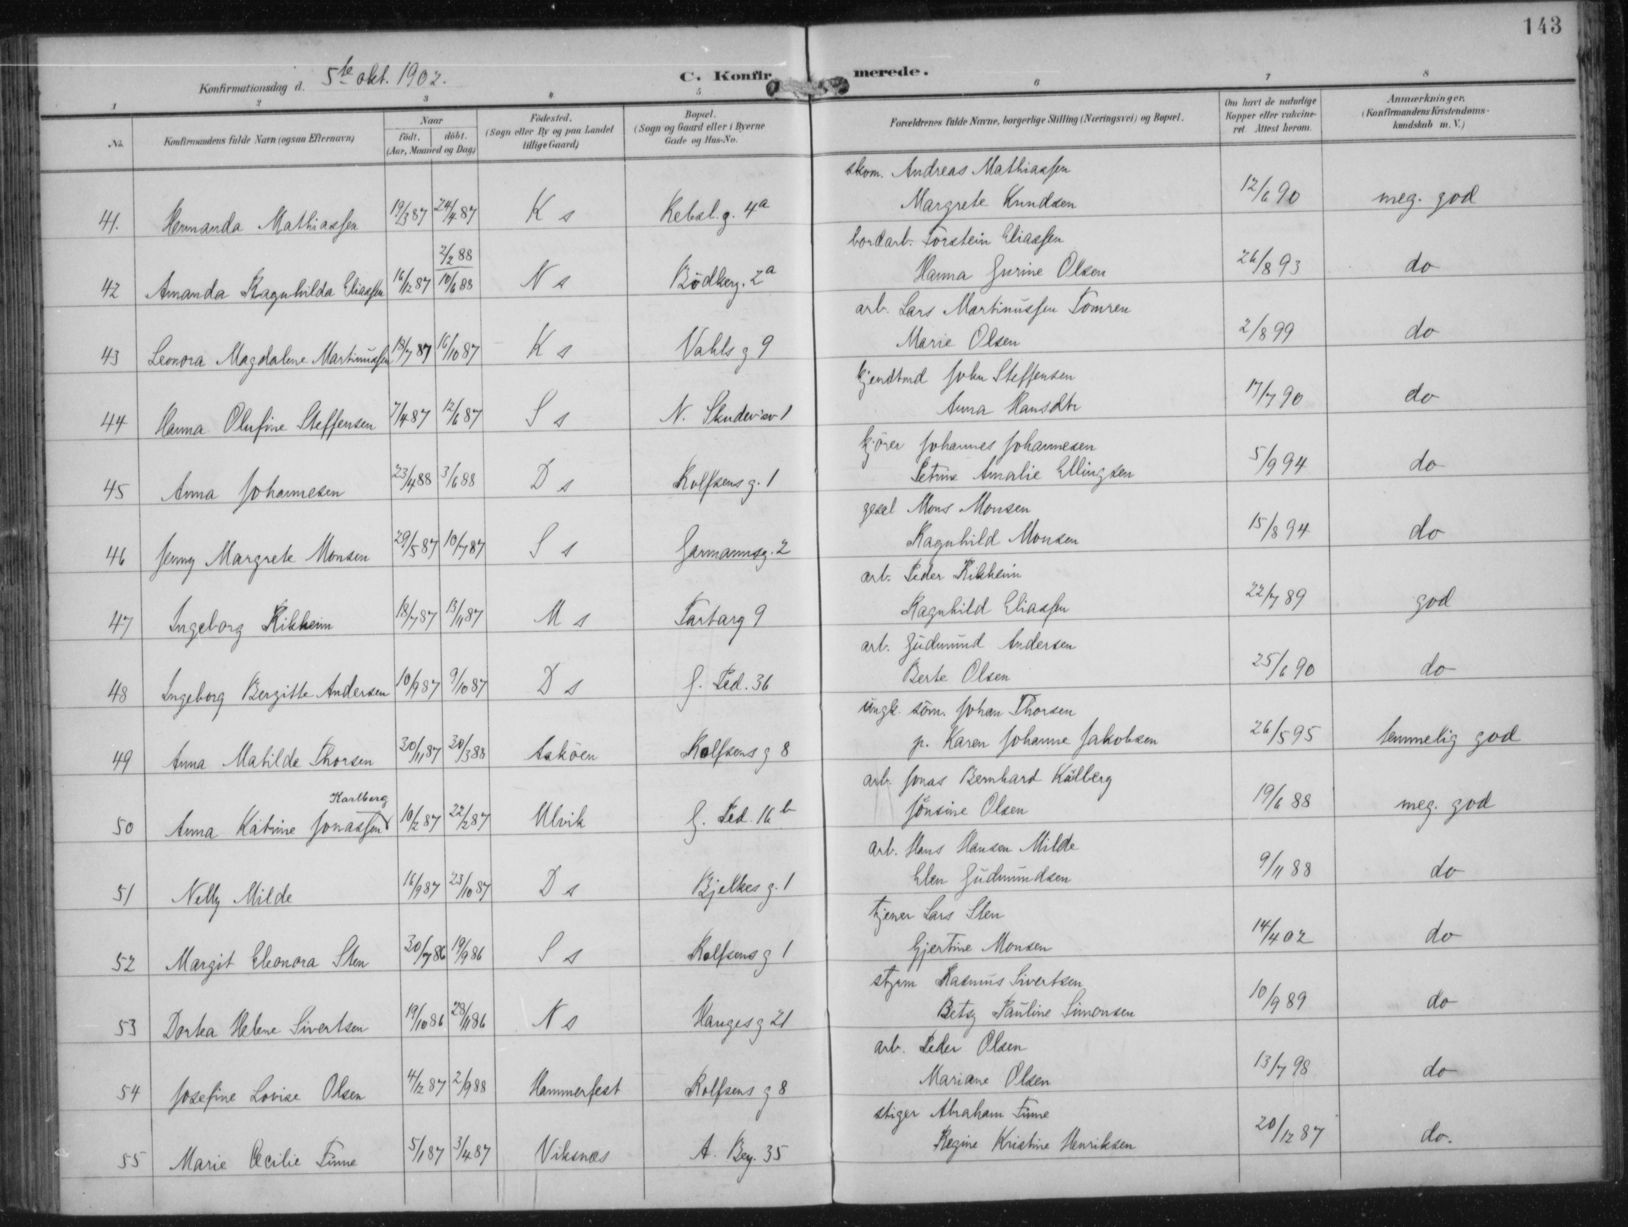 143
Konfirmationsdag d. 5te okt. 1902. C. Konfirmerede.
1 2 3 4 5 6 7 8
No. Konfirmandens fulde Navn (ogsaa Efternavn) Naar født. døbt. (Aar, Maaned og Dag) Fødested. (Sogn eller By og paa Landet tillige Gaard) Bopæl. (Sogn og Gaard eller i Byerne Gade og Hus-No. Forældrenes fulde Navne, borgerlige Stilling (Næringsvei) og Bopæl. Om havt de naturlige Kopper eller vakcineret. Attest herom. Anmærkninger. (Konfirmandens Kristendomskundskab m. V.)
skom. Andreas Mathiassen
41. Hermanda Mathiassen 19/3 87 24/4 87 K s Rebsl.g. 4a Margrete Knudsen 12/6 90 meg. god
2/2 88 bordarb. Torstein Eliassen
42 Amanda Ragnhilda Eliassen 16/12 87 10/6 88 N s Bödkerg. 2a Hanna Gurine Olsen 26/8 93 do
arb. Lars Martinussen Tomren
43 Leonora Magdalene Martinussen 18/7 87 16/10 87 K s Vahls g 9 Marie Olsen 2/8 99 do
kjendtmd John Steffensen
44 Hanna Olufine Steffensen 7/4 87 12/6 87 S s N. Skudeviksv 1 Anna Hansdtr 17/7 90 do
kjörer Johannes Johannesen
45 Anna Johannesen 23/4 88 3/6 88 D s Rolfsens g. 1 Petrine Amalie Ellingsen 5/9 94 do
gesel Mons Monsen
46 Jenny Margrete Monsen 29/5 87 10/7 87 S s Garmannsg. 2 Ragnhild Monsen 15/8 94 do
arb. Peder Rikheim
47 Ingeborg Rikheim 18/7 87 13/11 87 M s Tartarg 9 Ragnhild Eliassen 22/7 89 god
arb. Gudmund Andersen
48 Ingeborg Bergitte Andersen 10/9 87 9/10 87 D s J. Led. 36 Berte Olsen 25/6 90 do
ungk. söm. Johan Thorsen
49 Anna Matilde Thorsen 30/11 87 30/3 88 Askøen Rolfsens g 8 p. Karen Johanne Jakobsen 26/5 95 temmelig god
Karlberg arb. Jonas Bernhard Kålberg
50 Anna Katrine Jonassen 10/2 87 22/2 87 Ulvik J. Led. 16 b Jönsine Olsen 19/6 88 meg. god
arb. Hans Hansen Milde
51 Nelly Milde 16/9 87 23/10 87 D s Bjelkes g. 1 Elen Gudmundsen 9/11 88 do
tjener Lars Sten
52 Margit Eleonora Sten 30/7 86 19/9 86 S s Rolfsens g 1 Gjertine Monsen 14/4 02 do
styrm Rasmus Sivertsen
53 Dortea Helene Sivertsen 19/10 86 28/11 86 N s Hauges g 21 Betsy Pauline Simonsen 10/9 89 do
arb. Peder Olsen
54 Josefine Lovise Olsen 4/12 87 2/9 88 Hammerfest Rolfsens g 8 Mariane Olsen 13/7 98 do
stiger Abraham Finne
55 Marie Cecilie Finne 5/1 87 3/4 87 Viksnæs A. Bey. 35 Regine Kristine Henriksen 20/12 87 do.